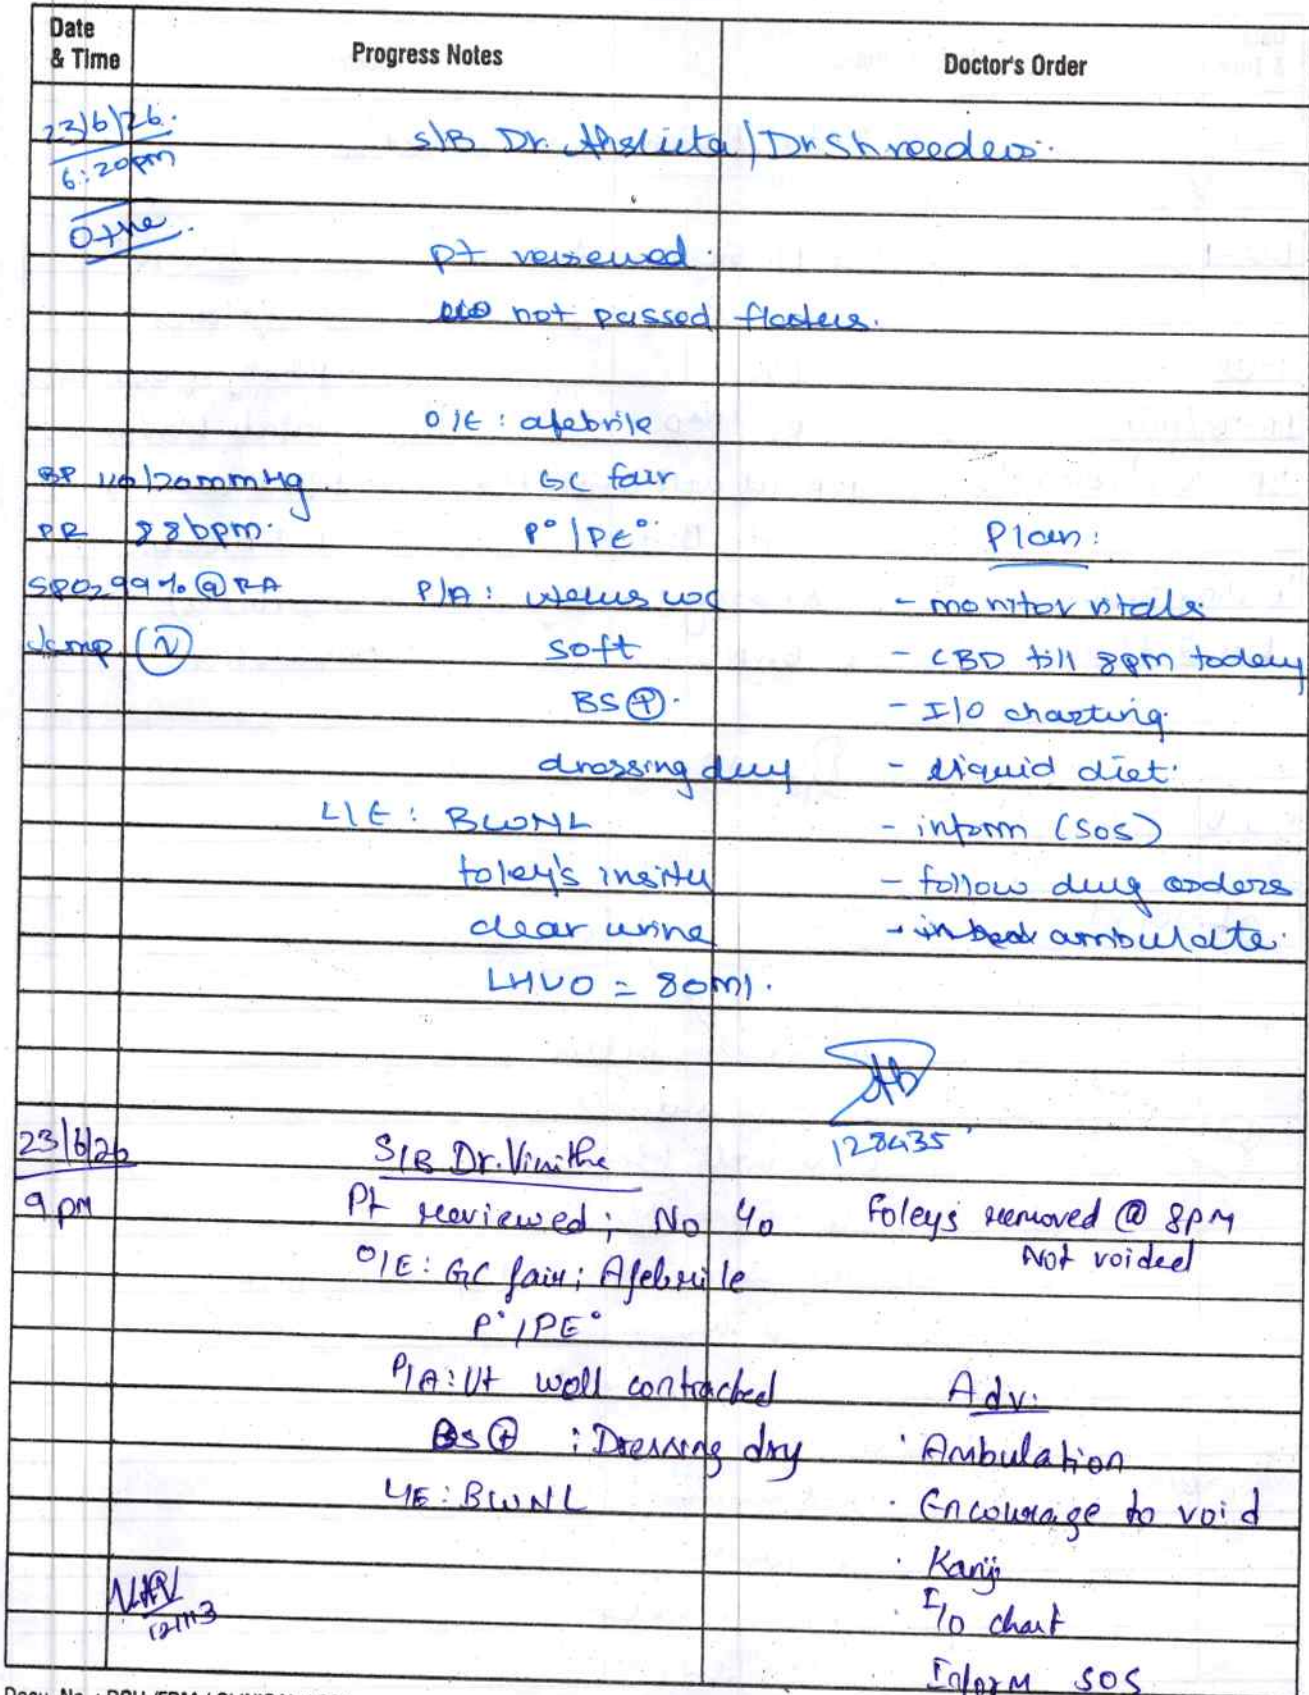 Date & Time
Progress Notes
Doctor's Order
23/6/26.
6:20pm
S/B Dr. /Dr Shreedevi.
O+ve.
pt reviewed.
not passed flatus.
O/E : afebrile
BP 110/70mmHg
GC fair
PR 88bpm.
P° / PE°
Plan :
SPO2 99% @ RA
P/A : uterus wc
- monitor vitals
Temp (N)
soft
- CBD till 8pm today
BS (+).
- I/O charting.
dressing dry
- liquid diet.
L/E : BWNL
- inform (SOS)
foley's insitu
- follow drug orders
clear urine
- ambulate.
LHUO = 80ml.
128435
23/6/26
S/B Dr. Vinitha
9 pm
Pt reviewed ; No c/o
Foleys removed @ 8PM
Not voided
O/E : GC fair ; Afebrile
P° / PE°
P/A : Ut well contracted
Adv:
BS (+) ; Dressing dry
· Ambulation
L/E : BWNL
· Encourage to void
· Kanji
121113
· I/O chart
Inform SOS